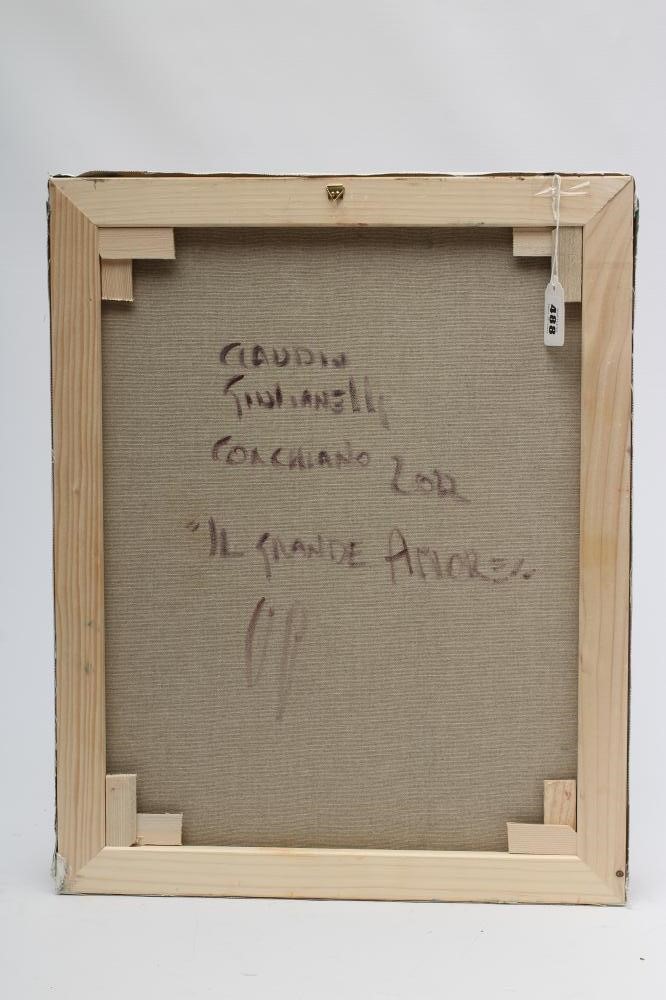 488
CLAUDIO
GIULIANELLI
CORCHIANO 2012
"IL GRANDE AMORE"